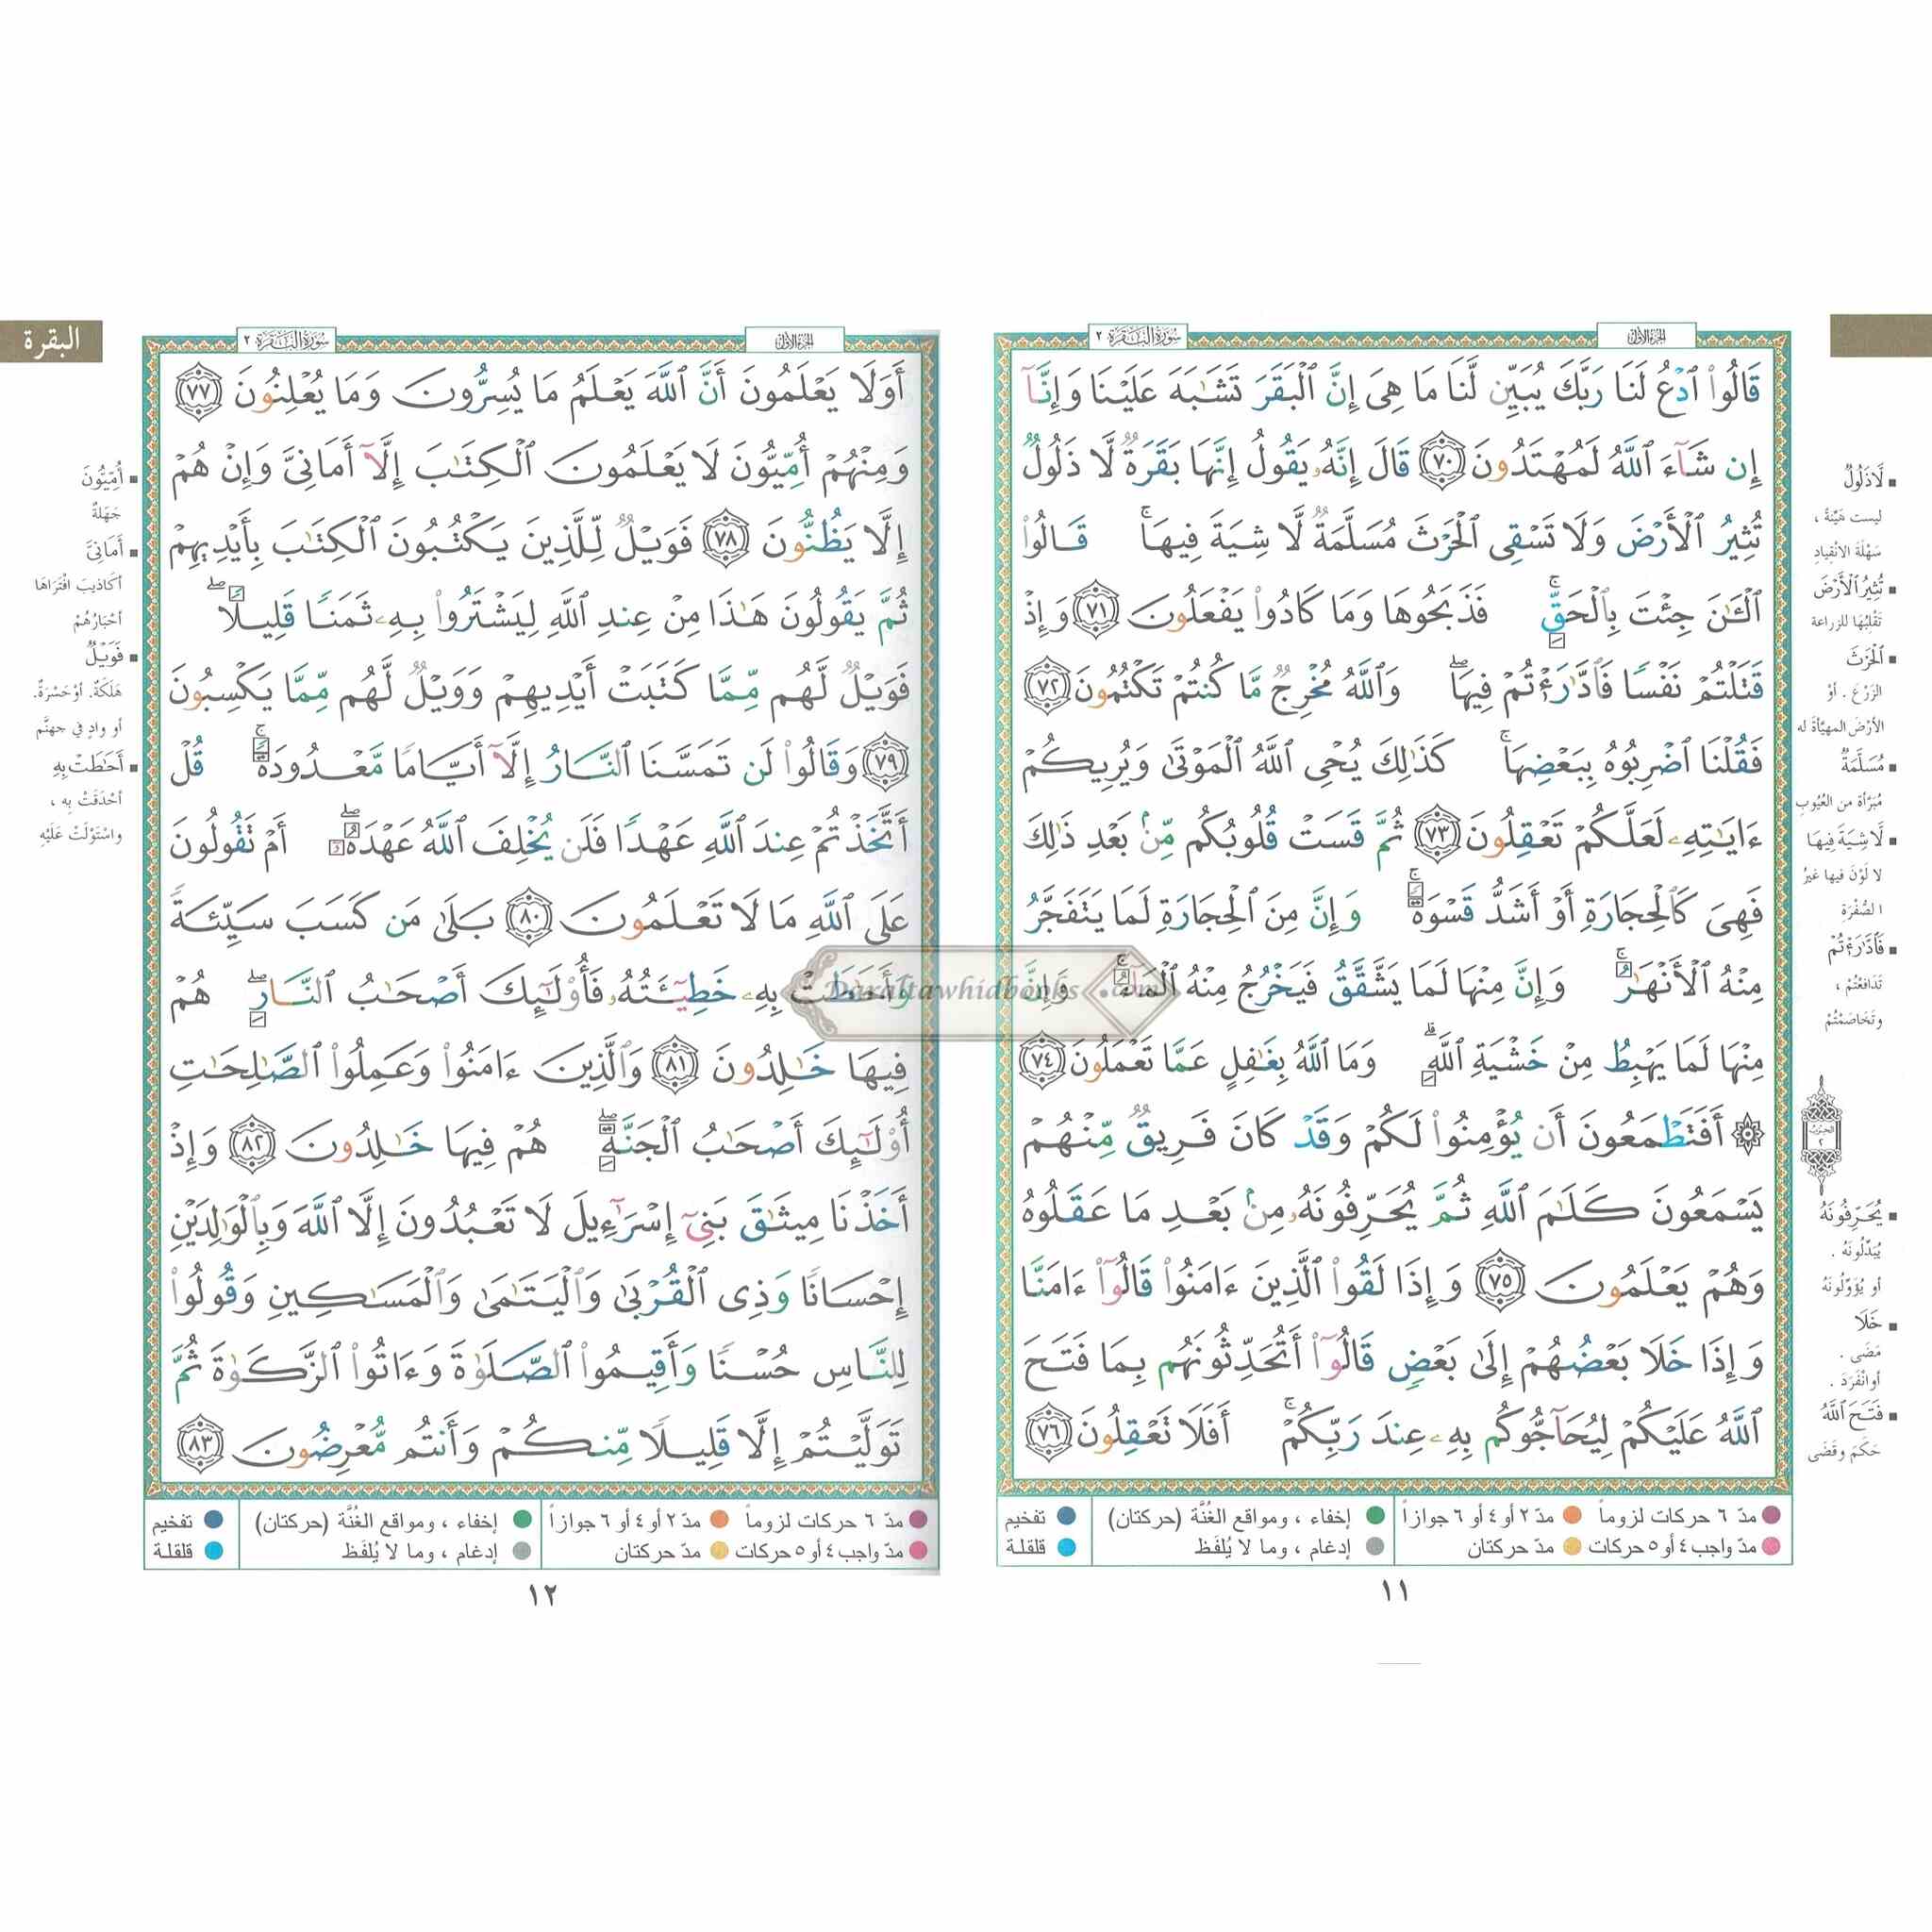 الجزء الأول
سورة البقرة ٢
قَالُوا۟ ٱدْعُ لَنَا رَبَّكَ يُبَيِّن لَّنَا مَا هِىَ إِنَّ ٱلْبَقَرَ تَشَـٰبَهَ عَلَيْنَا وَإِنَّآ
إِن شَآءَ ٱللَّهُ لَمُهْتَدُونَ ٧٠ قَالَ إِنَّهُۥ يَقُولُ إِنَّهَا بَقَرَةٌ لَّا ذَلُولٌ
تُثِيرُ ٱلْأَرْضَ وَلَا تَسْقِى ٱلْحَرْثَ مُسَلَّمَةٌ لَّا شِيَةَ فِيهَا ۚ قَالُوا۟
ٱلْـَٔـٰنَ جِئْتَ بِٱلْحَقِّ ۚ فَذَبَحُوهَا وَمَا كَادُوا۟ يَفْعَلُونَ ٧١ وَإِذْ
قَتَلْتُمْ نَفْسًا فَٱدَّٰرَْٰٔتُمْ فِيهَا ۖ وَٱللَّهُ مُخْرِجٌ مَّا كُنتُمْ تَكْتُمُونَ ٧٢
فَقُلْنَا ٱضْرِبُوهُ بِبَعْضِهَا ۚ كَذَٰلِكَ يُحْىِ ٱللَّهُ ٱلْمَوْتَىٰ وَيُرِيكُمْ
ءَايَـٰتِهِۦ لَعَلَّكُمْ تَعْقِلُونَ ٧٣ ثُمَّ قَسَتْ قُلُوبُكُم مِّنۢ بَعْدِ ذَٰلِكَ
فَهِىَ كَٱلْحِجَارَةِ أَوْ أَشَدُّ قَسْوَةً ۚ وَإِنَّ مِنَ ٱلْحِجَارَةِ لَمَا يَتَفَجَّرُ
مِنْهُ ٱلْأَنْهَـٰرُ ۚ وَإِنَّ مِنْهَا لَمَا يَشَّقَّقُ فَيَخْرُجُ مِنْهُ ٱلْمَآءُ ۚ وَإِنَّ
مِنْهَا لَمَا يَهْبِطُ مِنْ خَشْيَةِ ٱللَّهِ ۗ وَمَا ٱللَّهُ بِغَـٰفِلٍ عَمَّا تَعْمَلُونَ ٧٤
۞ أَفَتَطْمَعُونَ أَن يُؤْمِنُوا۟ لَكُمْ وَقَدْ كَانَ فَرِيقٌ مِّنْهُمْ
يَسْمَعُونَ كَلَـٰمَ ٱللَّهِ ثُمَّ يُحَرِّفُونَهُۥ مِنۢ بَعْدِ مَا عَقَلُوهُ
وَهُمْ يَعْلَمُونَ ٧٥ وَإِذَا لَقُوا۟ ٱلَّذِينَ ءَامَنُوا۟ قَالُوٓا۟ ءَامَنَّا
وَإِذَا خَلَا بَعْضُهُمْ إِلَىٰ بَعْضٍ قَالُوٓا۟ أَتُحَدِّثُونَهُم بِمَا فَتَحَ
ٱللَّهُ عَلَيْكُمْ لِيُحَآجُّوكُم بِهِۦ عِندَ رَبِّكُمْ ۚ أَفَلَا تَعْقِلُونَ ٧٦
لَّا ذَلُولٌ
ليست هَيِّنَةً ،
سَهْلَةَ الانْقِيادِ
تُثِيرُ ٱلْأَرْضَ
تَقْلِبُهَا للزراعة
ٱلْحَرْثَ
الزَّرْعَ . أوْ
الأرْضَ المهيَّأةَ له
مُسَلَّمَةٌ
مُبَرَّأة من العُيُوبِ
لَّا شِيَةَ فِيهَا
لا لَوْنَ فيها غيرُ
الصُّفْرَةِ
فَٱدَّٰرَْٰٔتُمْ
تَدَافَعْتُمْ ،
وتَخَاصَمْتُمْ
الحزب
٢
يُحَرِّفُونَهُ
يُبَدِّلُونَهُ .
أو يُؤَوِّلُونَهُ
خَلَا
مَضَى .
أوانْفَرَدَ .
فَتَحَ ٱللَّهُ
حَكَمَ وقَضَى
مدّ ٦ حركات لزوماً
مدّ ٢ أو ٤ أو ٦ جوازاً
إخفاء ، ومواقع الغُنَّة (حركتان)
تفخيم
مدّ واجب ٤ أو ٥ حركات
مدّ حركتان
إدغام ، وما لا يُلفَظ
قلقلة
١١
البقرة
الجزء الأول
سورة البقرة ٢
أَوَلَا يَعْلَمُونَ أَنَّ ٱللَّهَ يَعْلَمُ مَا يُسِرُّونَ وَمَا يُعْلِنُونَ ٧٧
وَمِنْهُمْ أُمِّيُّونَ لَا يَعْلَمُونَ ٱلْكِتَـٰبَ إِلَّآ أَمَانِىَّ وَإِنْ هُمْ
إِلَّا يَظُنُّونَ ٧٨ فَوَيْلٌ لِّلَّذِينَ يَكْتُبُونَ ٱلْكِتَـٰبَ بِأَيْدِيهِمْ
ثُمَّ يَقُولُونَ هَـٰذَا مِنْ عِندِ ٱللَّهِ لِيَشْتَرُوا۟ بِهِۦ ثَمَنًا قَلِيلًا ۖ
فَوَيْلٌ لَّهُم مِّمَّا كَتَبَتْ أَيْدِيهِمْ وَوَيْلٌ لَّهُم مِّمَّا يَكْسِبُونَ
٧٩ وَقَالُوا۟ لَن تَمَسَّنَا ٱلنَّارُ إِلَّآ أَيَّامًا مَّعْدُودَةً ۚ قُلْ
أَتَّخَذْتُمْ عِندَ ٱللَّهِ عَهْدًا فَلَن يُخْلِفَ ٱللَّهُ عَهْدَهُۥٓ ۖ أَمْ تَقُولُونَ
عَلَى ٱللَّهِ مَا لَا تَعْلَمُونَ ٨٠ بَلَىٰ مَن كَسَبَ سَيِّئَةً
وَأَحَـٰطَتْ بِهِۦ خَطِيٓـَٔتُهُۥ فَأُو۟لَـٰٓئِكَ أَصْحَـٰبُ ٱلنَّارِ ۖ هُمْ
فِيهَا خَـٰلِدُونَ ٨١ وَٱلَّذِينَ ءَامَنُوا۟ وَعَمِلُوا۟ ٱلصَّـٰلِحَـٰتِ
أُو۟لَـٰٓئِكَ أَصْحَـٰبُ ٱلْجَنَّةِ ۖ هُمْ فِيهَا خَـٰلِدُونَ ٨٢ وَإِذْ
أَخَذْنَا مِيثَـٰقَ بَنِىٓ إِسْرَٰٓءِيلَ لَا تَعْبُدُونَ إِلَّا ٱللَّهَ وَبِٱلْوَٰلِدَيْنِ
إِحْسَانًا وَذِى ٱلْقُرْبَىٰ وَٱلْيَتَـٰمَىٰ وَٱلْمَسَـٰكِينِ وَقُولُوا۟
لِلنَّاسِ حُسْنًا وَأَقِيمُوا۟ ٱلصَّلَوٰةَ وَءَاتُوا۟ ٱلزَّكَوٰةَ ثُمَّ
تَوَلَّيْتُمْ إِلَّا قَلِيلًا مِّنكُمْ وَأَنتُم مُّعْرِضُونَ ٨٣
أُمِّيُّونَ
جَهَلةٌ
أَمَانِىَّ
أكاذيبَ افْتَرَاهَا
أحْبَارُهُمْ
فَوَيْلٌ
هَلَكَةٌ. أوْحَسْرَةٌ.
أو وادٍ في جهنَّم
أَحَـٰطَتْ بِهِ
أحْدَقَتْ بِه ،
واسْتَوْلَتْ عَلَيْهِ
مدّ ٦ حركات لزوماً
مدّ ٢ أو ٤ أو ٦ جوازاً
إخفاء ، ومواقع الغُنَّة (حركتان)
تفخيم
مدّ واجب ٤ أو ٥ حركات
مدّ حركتان
إدغام ، وما لا يُلفَظ
قلقلة
١٢
Daraltawhidbooks.com